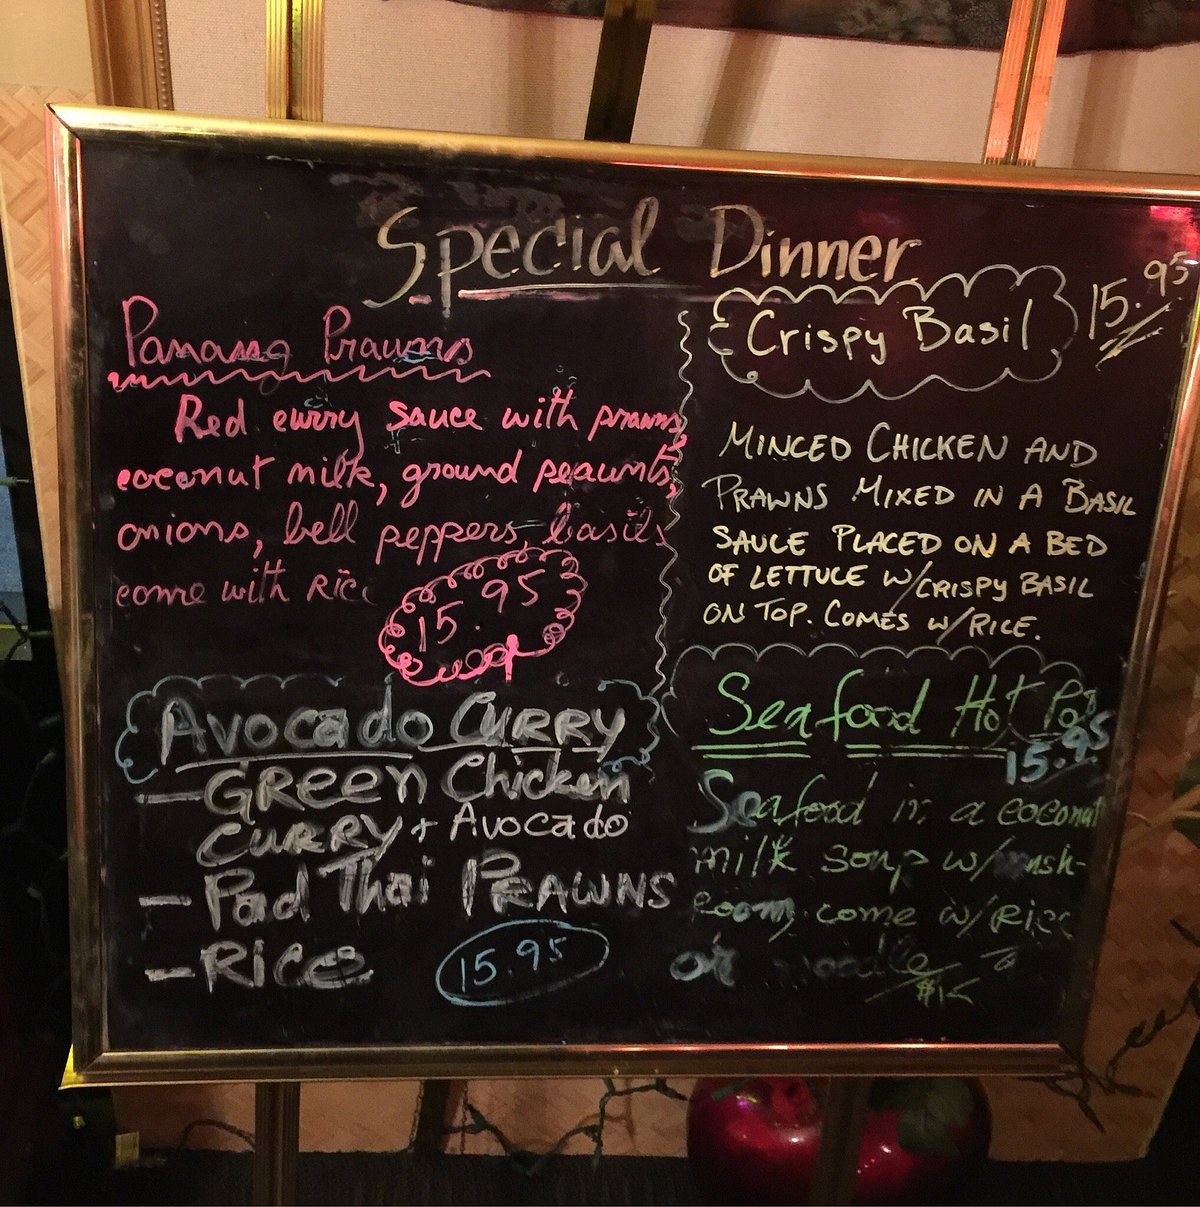 Special Dinner
Panang Prawns
Red curry sauce with prawns,
coconut milk, ground peaunts,
onions, bell peppers, basils
come with Rice
15.95
Crispy Basil 15.95
MINCED CHICKEN AND
PRAWNS MIXED IN A BASIL
SAUCE PLACED ON A BED
OF LETTUCE W/CRISPY BASIL
ON TOP. COMES W/RICE.
Avocado CURRY
- GREEn Chicken
CURRY + Avocado
- Pad Thai PRAWNS
- Rice
15.95
Seafood Hot Pot
15.95
Seafood in a coconut
milk soup w/mush-
room, come w/Rice
or noodle